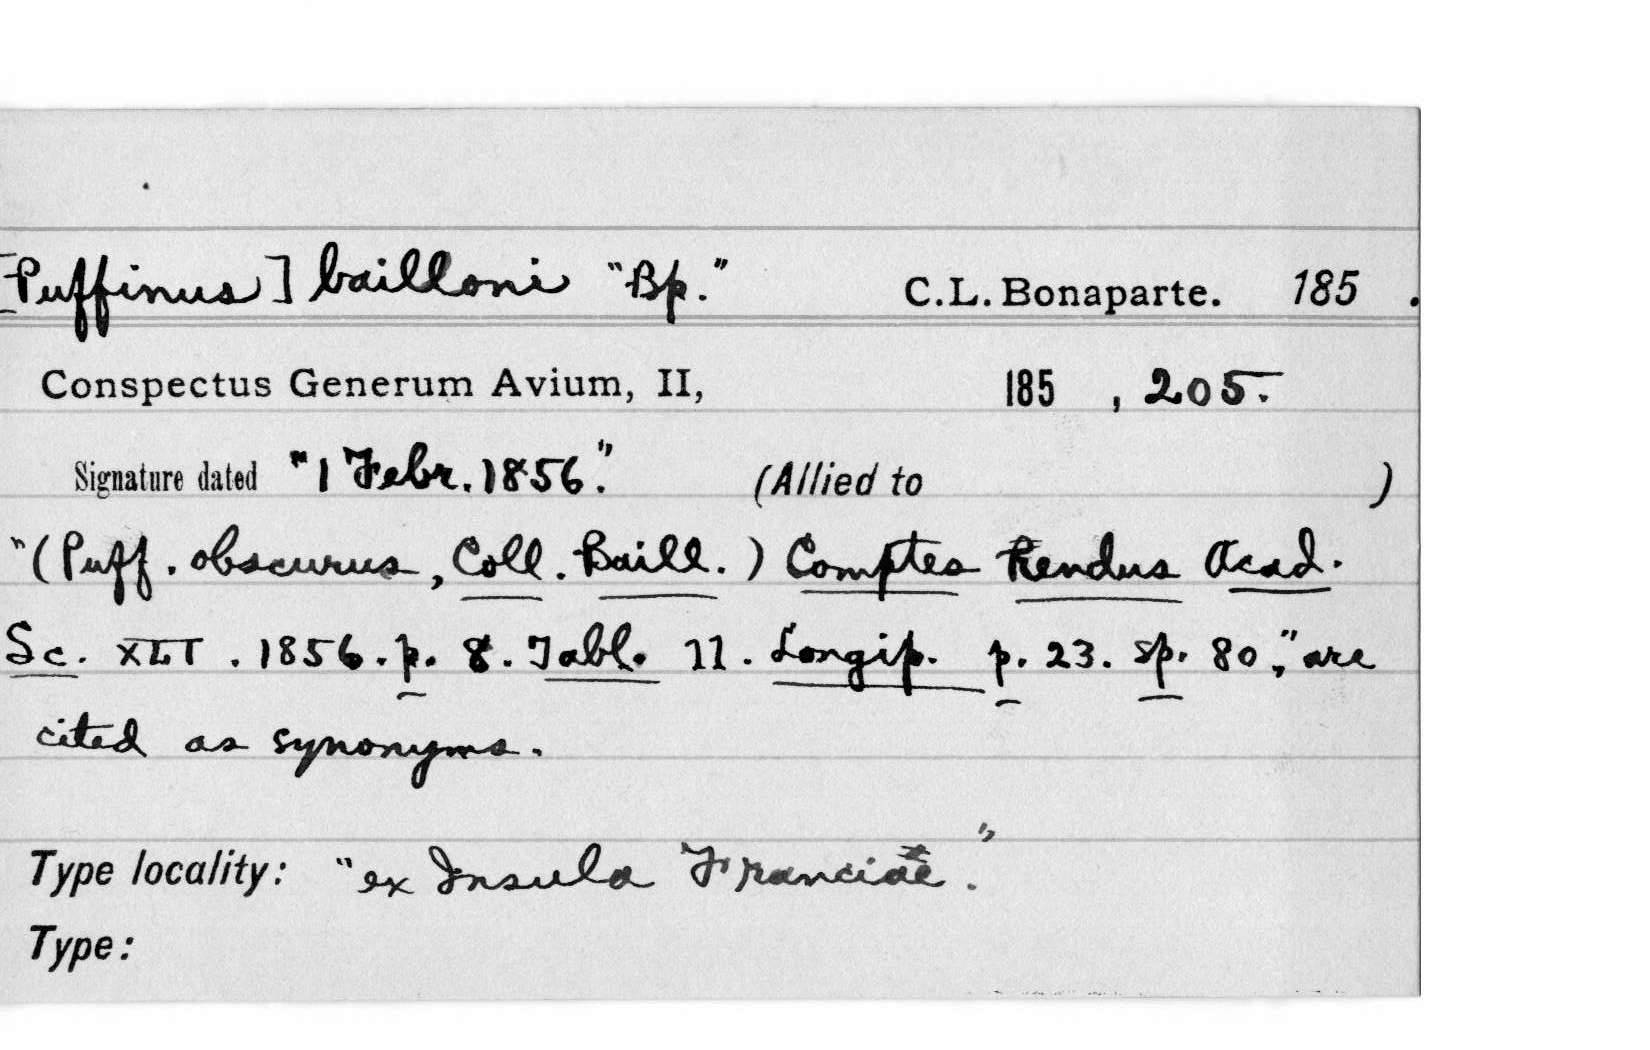 [Puffinus] bailloni "Bp." C.L. Bonaparte. 185 .
Conspectus Generum Avium, II, 185 , 205.
Signature dated "1 Febr. 1856." (Allied to )
"(Puff. obscurus, Coll. Baill.) Comptes Rendus Acad.
Sc. XLII. 1856. p. 8. Tabl. 11. Longip. p. 23. sp. 80," are
cited as synonyms.
Type locality: "ex Insula Franciae."
Type: